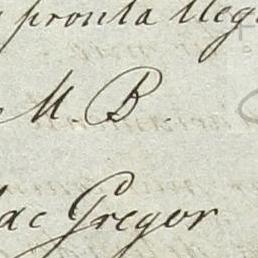 pronta lleg
M. B.
Mac Gregor